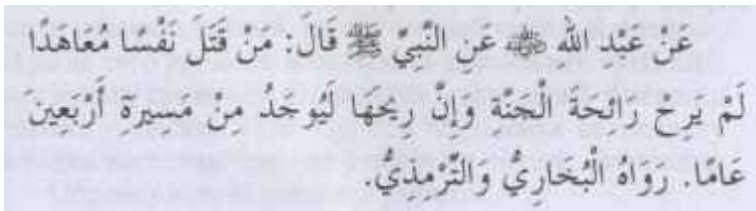 عَنْ عَبْدِ الله ﷺ عَنِ النَّبِيِّ ﷺ قَالَ: مَنْ قَتَلَ نَفْسًا مُعَاهَدًا
لَمْ يَرِحْ رَائِحَةَ الْجَنَّةِ وَإِنَّ رِيحَهَا لَيُوجَدُ مِنْ مَسِيرَةِ أَرْبَعِينَ
عَامًا. رَوَاهُ الْبُخَارِيُّ وَالتِّرْمِذِيُّ.